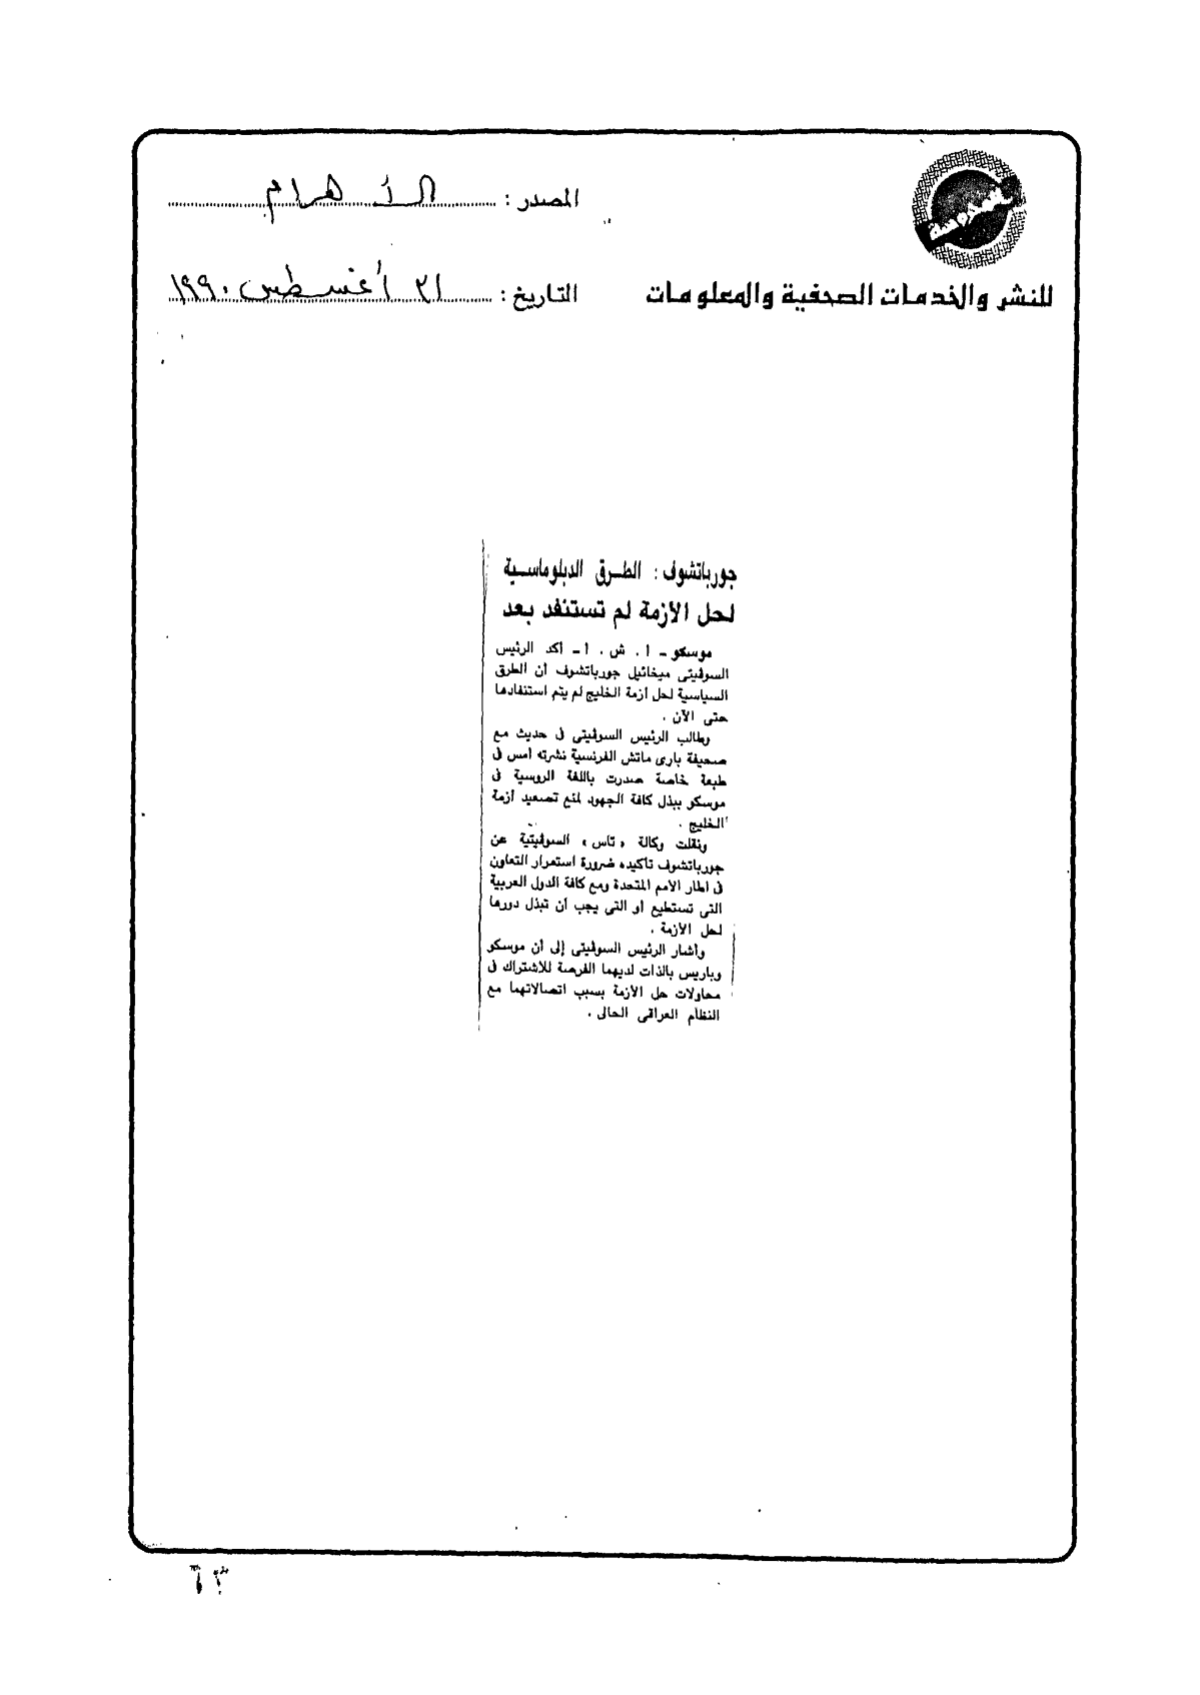 المصدر : الأهرام
للنشر والخدمات الصحفية والمعلومات
التاريخ : ٣١ أغسطس ١٩٩٠
جورباتشوف : الطرق الدبلوماسية
لحل الأزمة لم تستنفد بعد
موسكو ـ أ . ش . أ ـ أكد الرئيس
السوفيتى ميخائيل جورباتشوف أن الطرق
السياسية لحل أزمة الخليج لم يتم استنفادها
حتى الآن .
وطالب الرئيس السوفيتى فى حديث مع
صحيفة بارى ماتش الفرنسية نشرته أمس فى
طبعة خاصة صدرت باللغة الروسية فى
موسكو ببذل كافة الجهود لمنع تصعيد أزمة
الخليج .
ونقلت وكالة « تاس » السوفيتية عن
جورباتشوف تأكيده ضرورة استمرار التعاون
فى اطار الأمم المتحدة ومع كافة الدول العربية
التى تستطيع أو التى يجب أن تبذل دورها
لحل الأزمة .
وأشار الرئيس السوفيتى إلى أن موسكو
وباريس بالذات لديهما الفرصة للاشتراك فى
محاولات حل الأزمة بسبب اتصالاتهما مع
النظام العراقى الحالى .